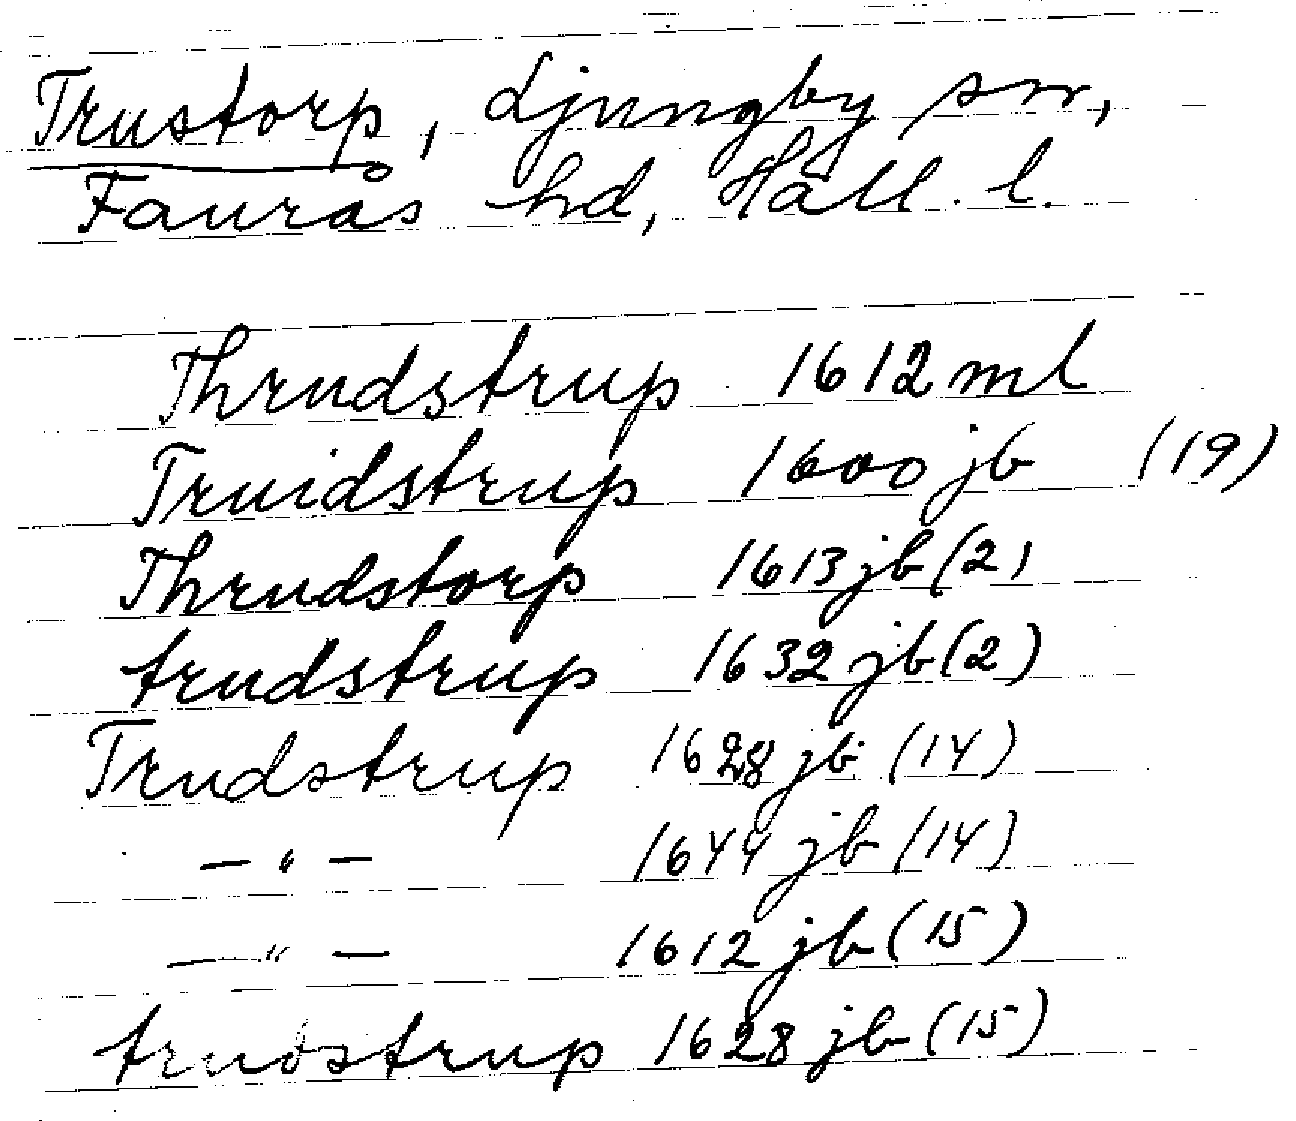 Trustorp, Ljungby sn,
Faurås hd, Hall. l.
Thrudstrup 1612 ml
Truidstrup 1600 jb (19)
Thrudstorp 1613 jb (2)
trudstrup 1632 jb (2)
Trudstrup 1628 jb (14)
— " — 1644 jb (14)
— " — 1612 jb (15)
trudstrup 1628 jb (15)